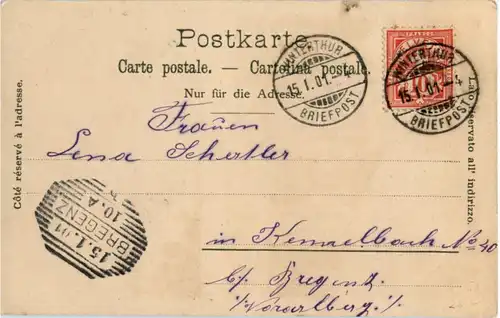 Postkarte.
Carte postale. — Cartolina postale.
Nur für die Adresse.
Côté réservé à l'adresse.
Lato riservato all' indirizzo.
WINTERTHUR
15.1.01.-4
BRIEFPOST
HELVETIA
10
WINTERTHUR
15.1.01.-4
BRIEFPOST
Frauen
Lena Schertler
BREGENZ
15.1.01
10.A
in Kennelbach No 40
b/ Bregenz
/Vorarlberg/.